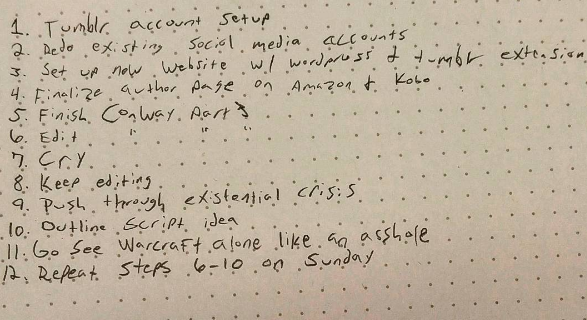 1. Tumblr account setup
2. Redo existing social media accounts
3. Set up new website w/ wordpress & tumblr extension
4. Finalize author page on Amazon & Kobo
5. Finish Conway Part 3
6. Edit " " "
7. Cry
8. Keep editing
9. Push through existential crisis
10. Outline script idea
11. Go See Warcraft alone like an asshole
12. Repeat steps 6-10 on Sunday